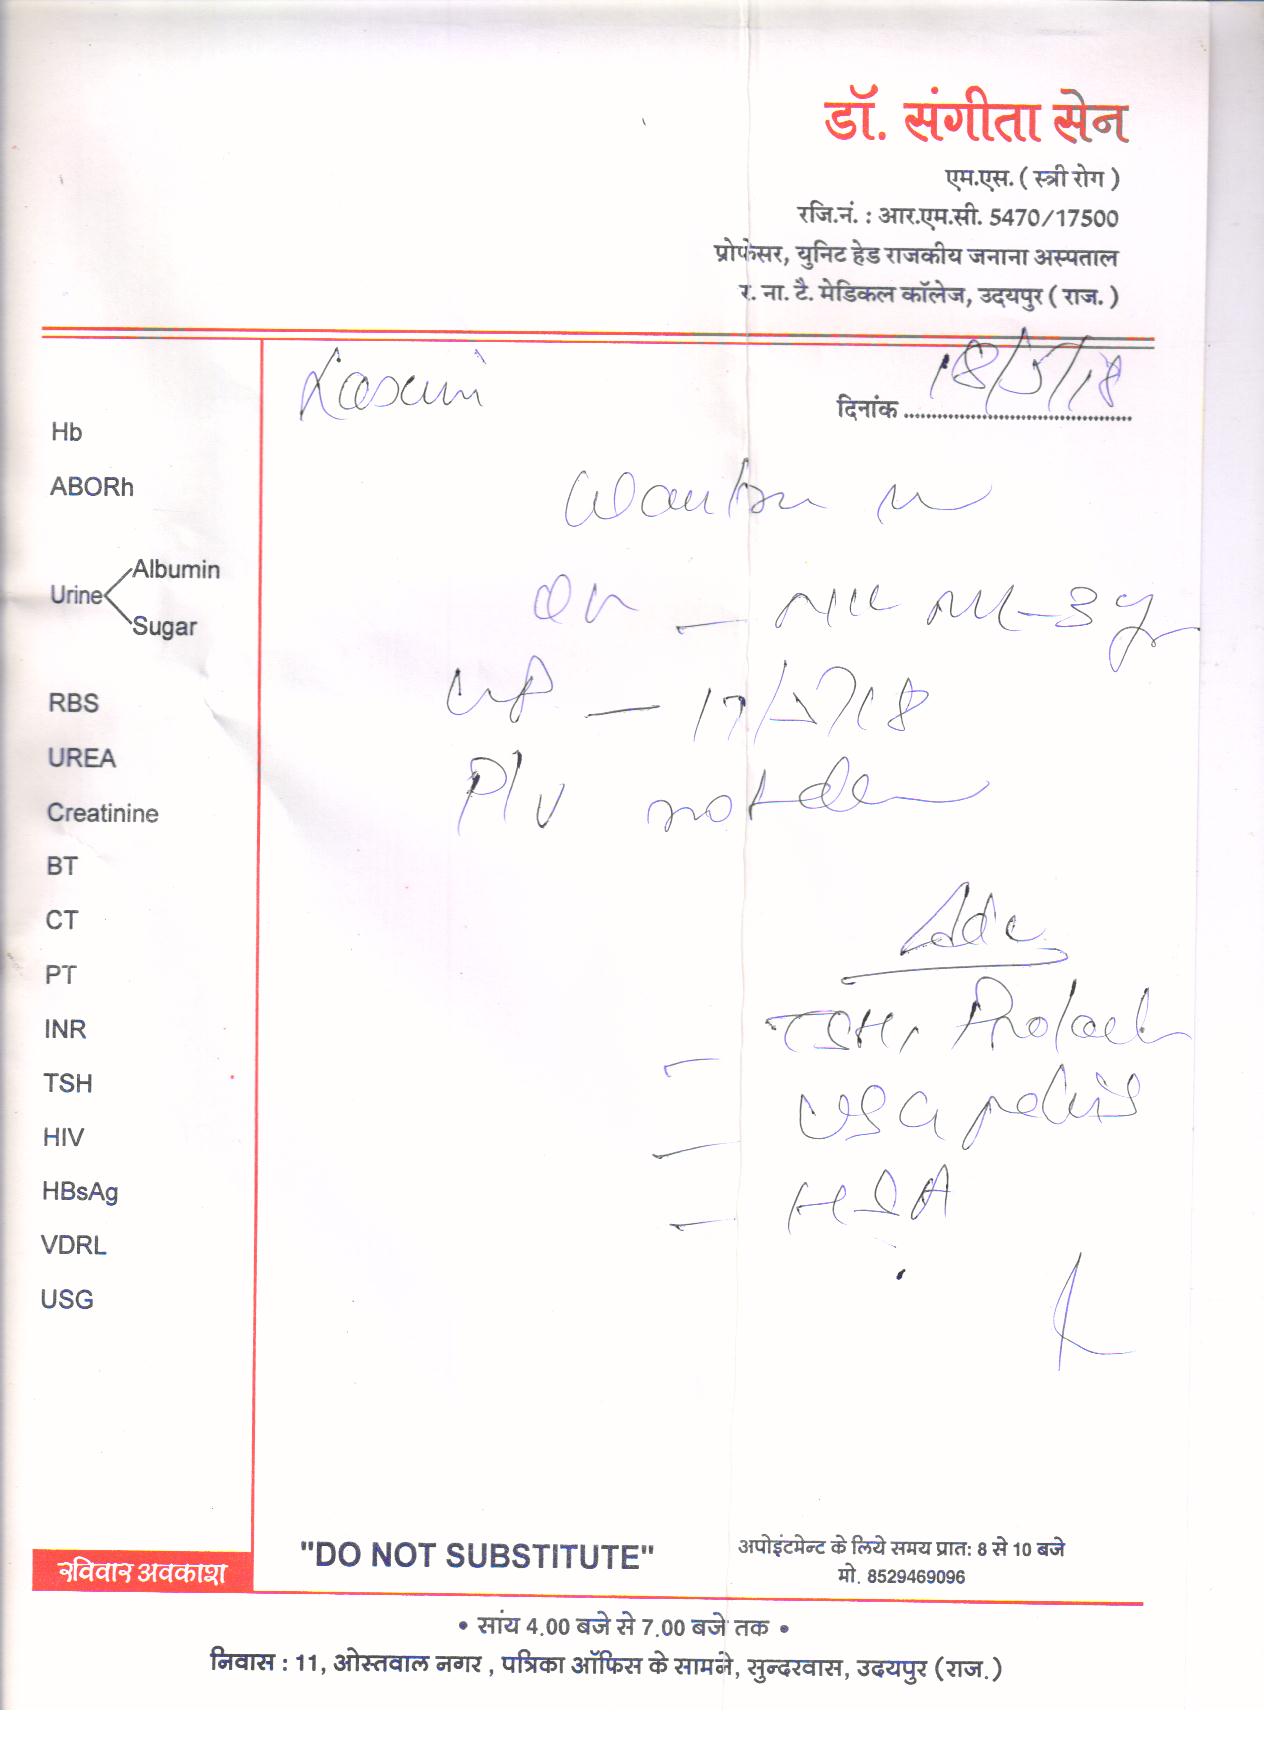 डॉ. संगीता सेन
एम.एस. ( स्त्री रोग )
रजि.नं. : आर.एम.सी. 5470/17500
प्रोफेसर, युनिट हेड राजकीय जनाना अस्पताल
र. ना. टै. मेडिकल कॉलेज, उदयपुर ( राज. )
दिनांक 18/5/18
Hb
ABORh
Urine
Albumin
Sugar
RBS
UREA
Creatinine
BT
CT
PT
INR
TSH
HIV
HBsAg
VDRL
USG
- 3 y
- 17/5/18
P/V not
Adv
- TSH, Prolact
- USG pelvis
- HSA
रविवार अवकाश
"DO NOT SUBSTITUTE"
अपोइंटमेन्ट के लिये समय प्रात: 8 से 10 बजे
मो. 8529469096
• सांय 4.00 बजे से 7.00 बजे तक •
निवास : 11, ओस्तवाल नगर , पत्रिका ऑफिस के सामने, सुन्दरवास, उदयपुर (राज.)